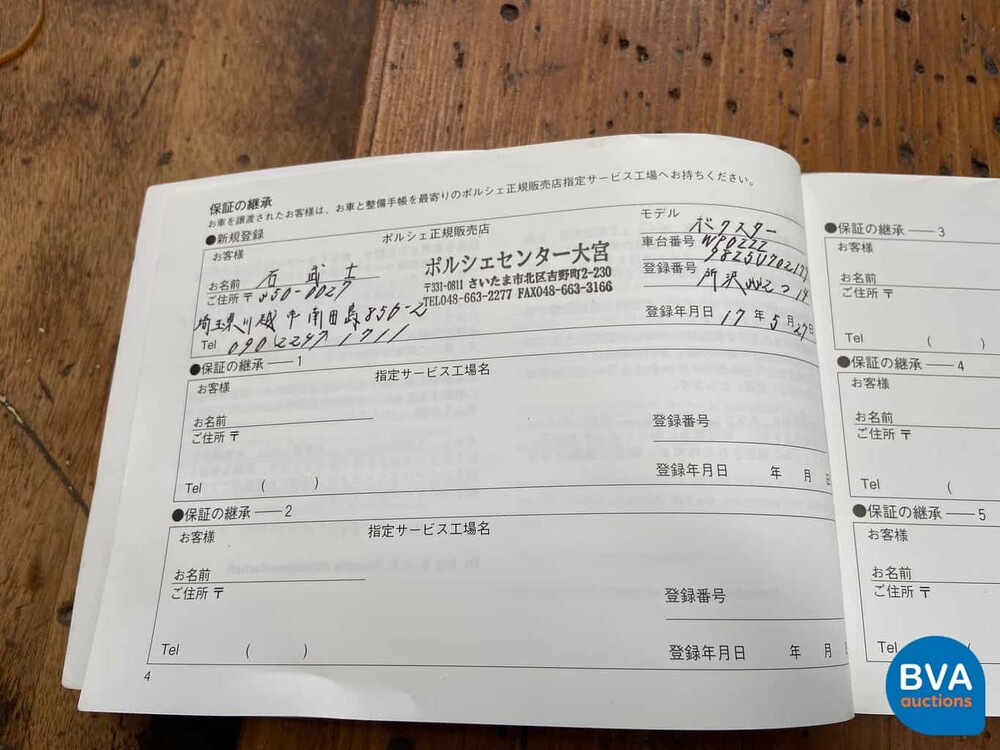 保証の継承
お車を譲渡されたお客様は、お車と整備手帳を最寄りのポルシェ正規販売店指定サービス工場へお持ちください。
●新規登録
お客様
ポルシェ正規販売店
モデル ボクスター
ポルシェセンター大宮
〒331-0811 さいたま市北区吉野町2-230
TEL048-663-2277 FAX048-663-3166
車台番号 WP0ZZZ
お名前 石 武士
ご住所 〒350-0027
埼玉県川越市南田島856-2
登録番号 所沢
Tel
登録年月日 17年 5月 27日
●保証の継承——1
お客様
指定サービス工場名
お名前
ご住所 〒
登録番号
Tel ( )
登録年月日 年 月 日
●保証の継承——2
お客様
指定サービス工場名
お名前
ご住所 〒
登録番号
Tel ( )
登録年月日 年 月 日
4
●保証の継承——3
お客様
お名前
ご住所 〒
Tel ( )
●保証の継承——4
お客様
お名前
ご住所 〒
Tel (
●保証の継承——5
お客様
お名前
ご住所 〒
Tel
BVA
auctions